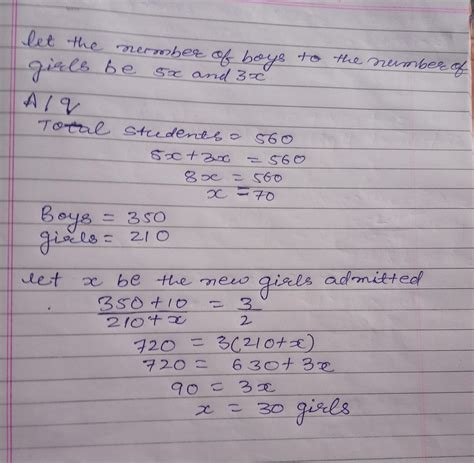 let the number of boys to the number of
girls be 5x and 3x
A/q
Total students = 560
5x+3x = 560
8x = 560
x = 70
Boys = 350
girls = 210
let x be the new girls admitted
. 350+10/210+x = 3/2
720 = 3(210+x)
720 = 630+3x
90 = 3x
x = 30 girls